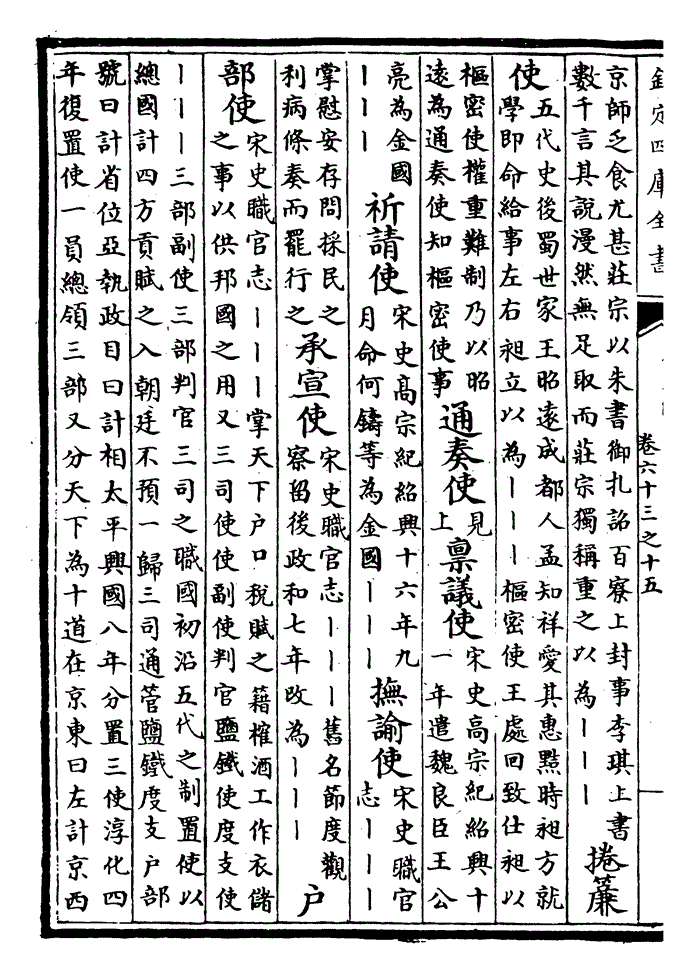 欽定四庫全書
卷六十三之十五
京師乏食尤甚莊宗以朱書御札詔百寮上封事李琪上書
數千言其說漫然無足取而莊宗獨稱重之以為丨丨丨
捲簾
使
五代史後蜀世家王昭遠成都人孟知祥愛其惠黠時昶方就
學即命給事左右昶立以為丨丨丨樞密使王處回致仕昶以
樞密使權重難制乃以昭
遠為通奏使知樞密使事
通奏使
見
上
稟議使
宋史高宗紀紹興十
一年遣魏良臣王公
亮為金國
丨丨丨
祈請使
宋史高宗紀紹興十六年九
月命何鑄等為金國丨丨丨
撫諭使
宋史職官
志丨丨丨
掌慰安存問採民之
利病條奏而罷行之
承宣使
宋史職官志丨丨丨舊名節度觀
察留後政和七年改為丨丨丨
户
部使
宋史職官志丨丨丨掌天下户口稅賦之籍榷酒工作衣儲
之事以供邦國之用又三司使使副使判官鹽鐵使度支使
丨丨丨三部副使三部判官三司之職國初沿五代之制置使以
總國計四方貢賦之入朝廷不預一歸三司通管鹽鐵度支户部
號曰計省位亞執政目曰計相太平興國八年分置三使淳化四
年復置使一員總領三部又分天下為十道在京東曰左計京西